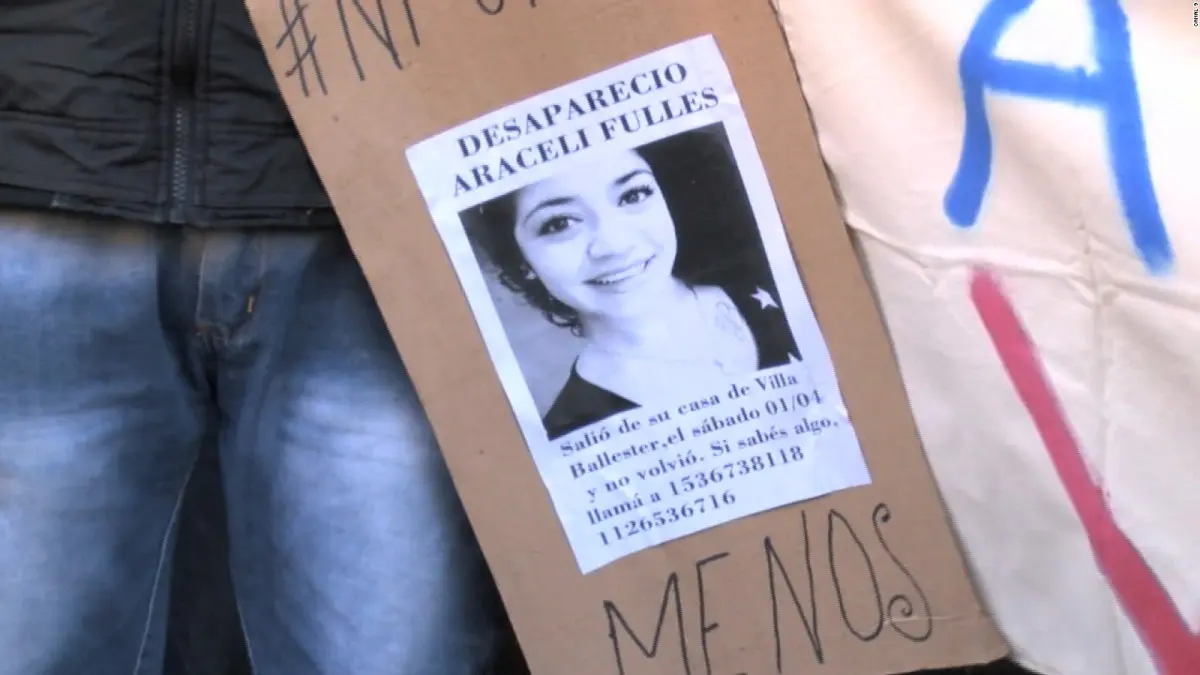 #NI
DESAPARECIO
ARACELI FULLES
Salió de su casa de Villa
Ballester,el sábado 01/04
y no volvió. Si sabés algo,
llamá a 1536738118
1126536716
MENOS
A
CANAL 9